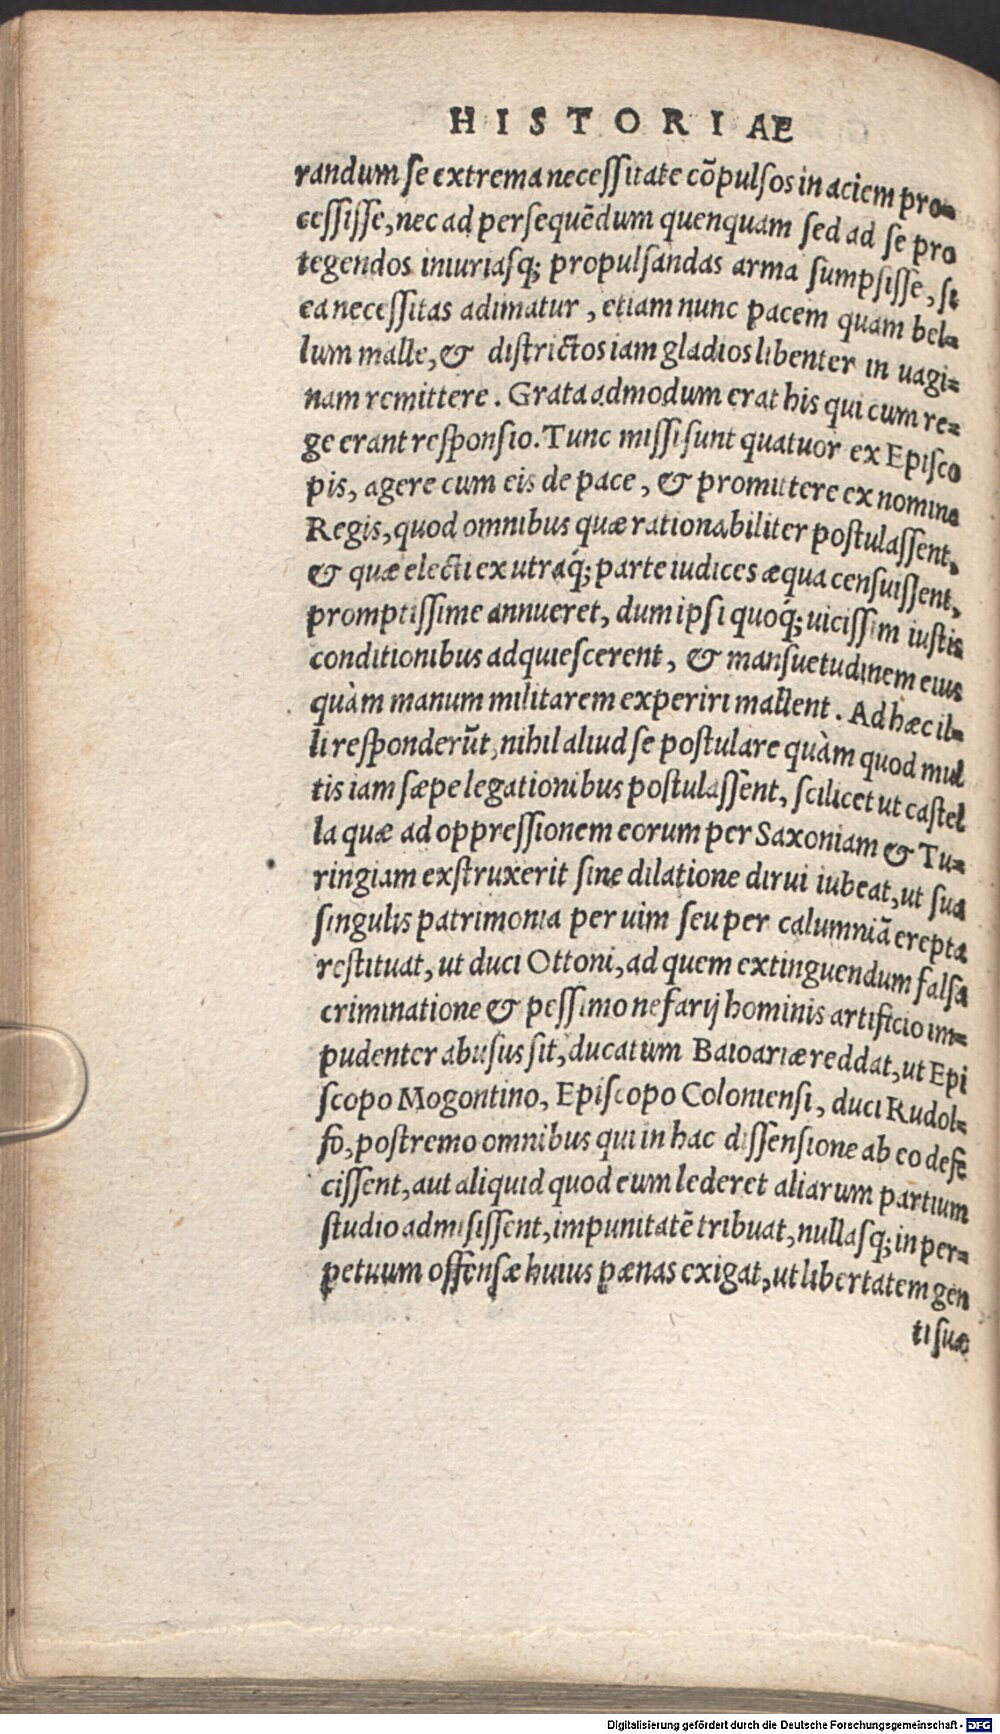 HISTORIAE
randum se extrema necessitate cõpulsos in aciem pro=
cessisse, nec ad persequẽdum quenquam sed ad se pro
tegendos iniuriasq; propulsandas arma sumpsisse, si
ea necessitas adimatur, etiam nunc pacem quam bel=
lum malle, & districtos iam gladios libenter in uagi=
nam remittere. Grata admodum erat his qui cum re=
ge erant responsio. Tunc missi sunt quatuor ex Episco
pis, agere cum eis de pace, & promittere ex nomine
Regis, quod omnibus quæ rationabiliter postulassent,
& quæ electi ex utráq; parte iudices æqua censuissent,
promptissime annueret, dum ipsi quoq́; uicissim iustis
conditionibus adquiescerent, & mansuetudinem eius
quàm manum militarem experiri mallent. Ad hæc il=
li responderũt, nihil aliud se postulare quàm quod mul
tis iam sæpe legationibus postulassent, scilicet ut castel
la quæ ad oppressionem eorum per Saxoniam & Tu=
ringiam exstruxerit sine dilatione dirui iubeat, ut sua
singulis patrimonia per uim seu per calumniã erepta
restituat, ut duci Ottoni, ad quem extinguendum falsa
criminatione & pessimo nefarij hominis artificio im=
pudenter abusus sit, ducatum Baioariæ reddat, ut Epi
scopo Mogontino, Episcopo Coloniensi, duci Rudol=
fo, postremo omnibus qui in hac dissensione ab eo defe
cissent, aut aliquid quod eum lederet aliarum partium
studio admisissent, impunitatẽ tribuat, nullasq; in per=
petuum offensæ huius pænas exigat, ut libertatem gen
ti suæ
Digitalisierung gefördert durch die Deutsche Forschungsgemeinschaft - DFG